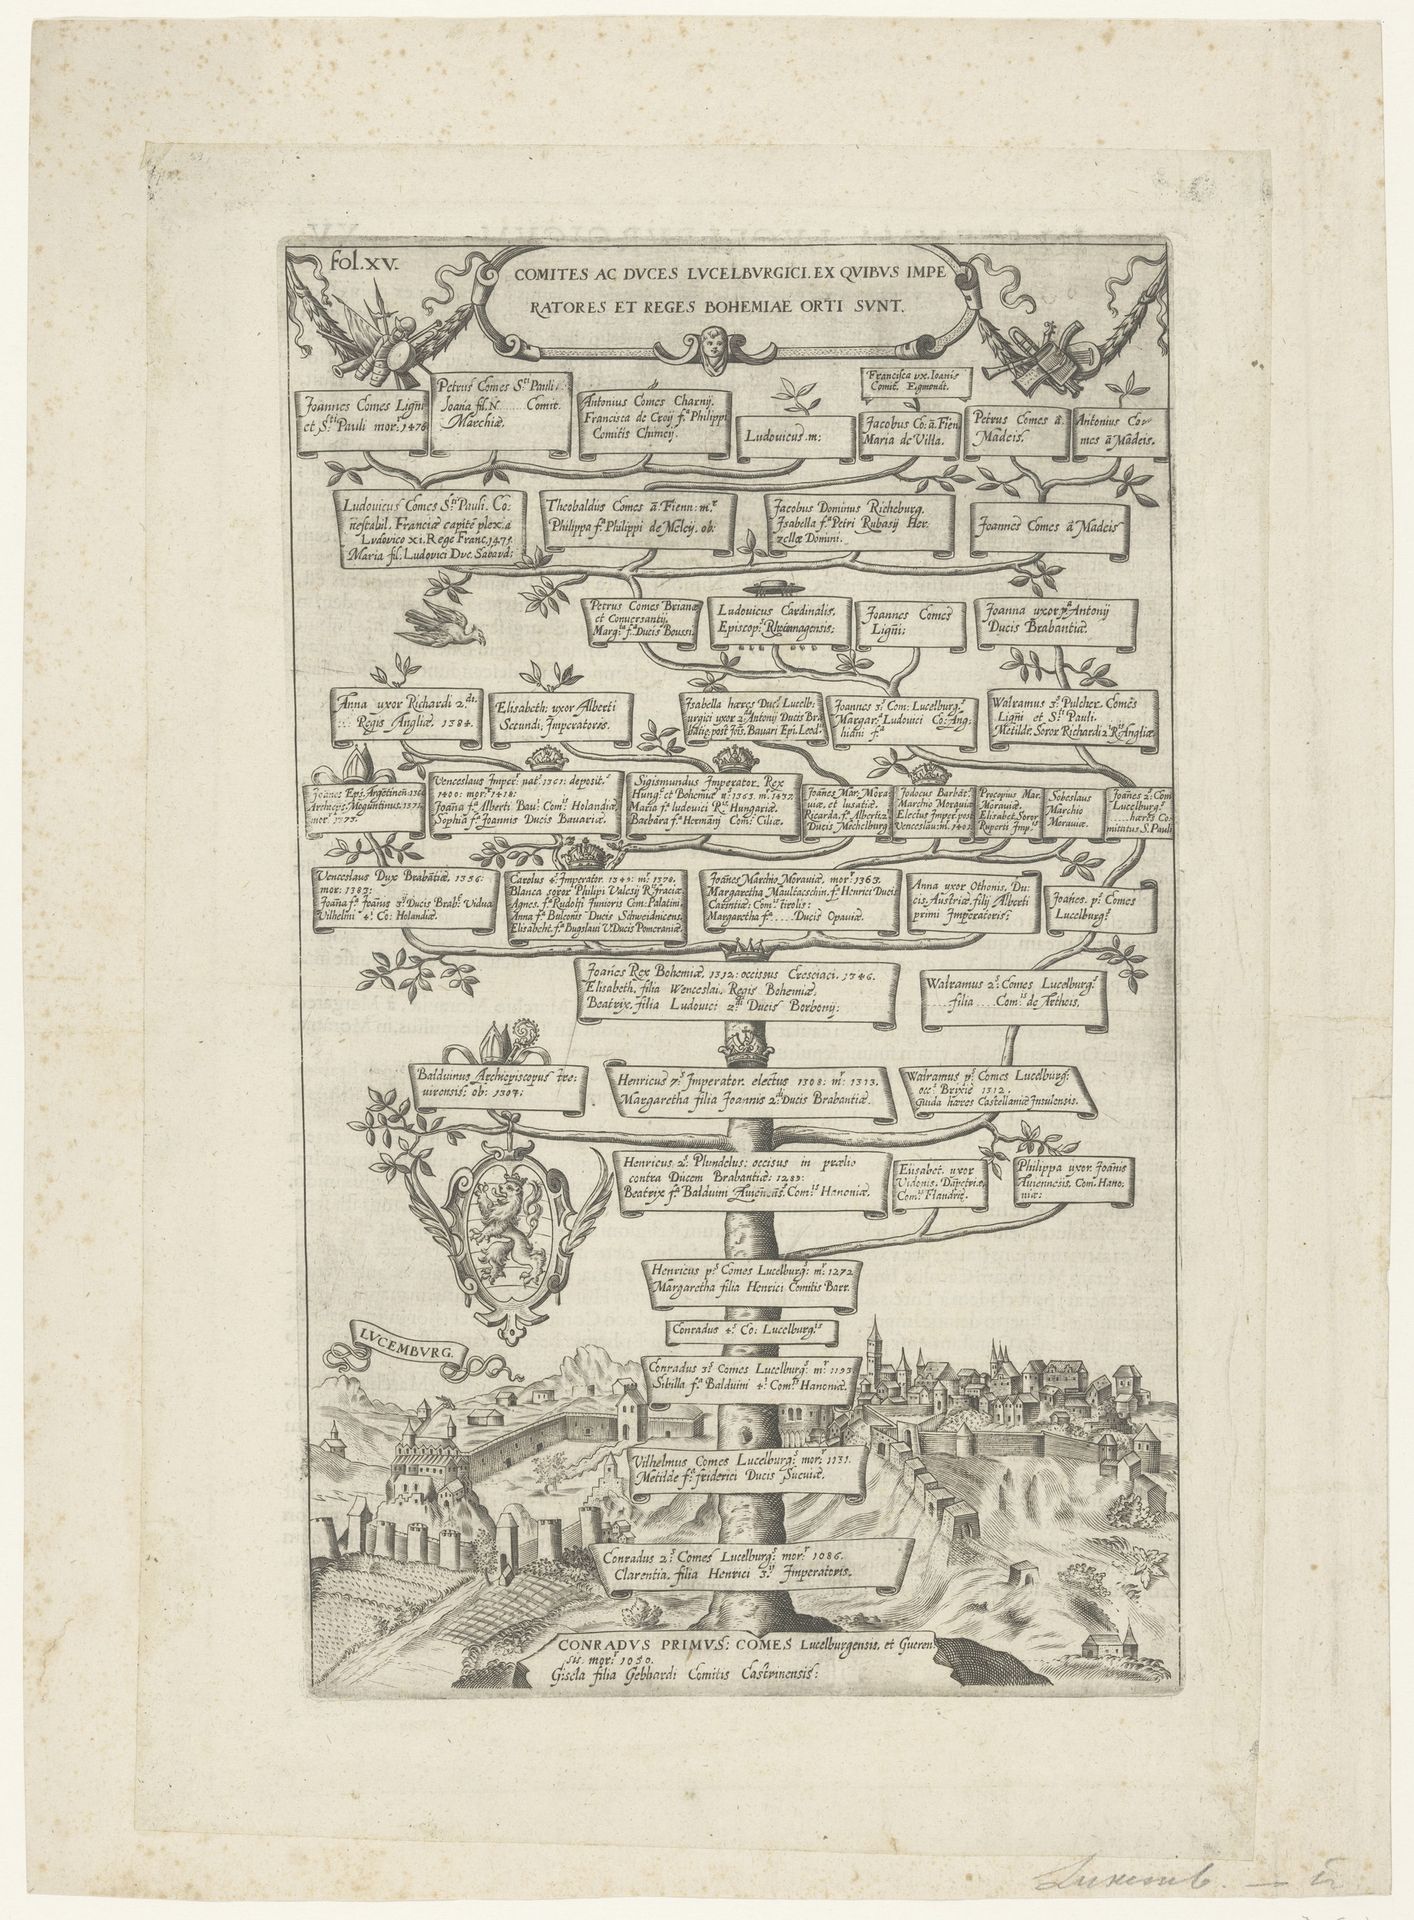 fol. XV.
COMITES AC DVCES LVCELBVRGICI. EX QVIBVS IMPE
RATORES ET REGES BOHEMIAE ORTI SVNT.
Joannes Comes Ligni
et S.ti Pauli mor: 1476
Petrus Comes S.ti Pauli.
Joana fil. N...... Comit.
Marchiæ.
Antonius Comes Charnij.
Francisca de Croij f.a Philippi
Comitis Chimeij.
Ludovicus m:
Francisca vx. Ioanis
Comit. Egmondt.
Jacobus Co: a. Fien
Maria de Villa.
Petrus Comes ā.
Madeis.
Antonius Co-
mes ā Madeis.
Ludovicus Comes S.ti Pauli. Co:
nestabil. Franciæ capite plex. a
Ludovico XI. Rege Franc. 1475.
Maria fil. Ludovici Duc. Sabaud:
Theobaldus Comes ā. Fienn: m.r
Philippa f.a Philippi de Meleij. ob:
Jacobus Dominus Richeburg.
Isabella f.a Petri Rubasij Her
zellæ Domini.
Joannes Comes ā Madeis
Petrus Comes Brianæ
et Conversantij.
Marg.ta f.a Ducis Boussi.
Ludovicus Cardinalis.
Episcop.s
Joannes Comes
Ligñi:
Joanna uxor Antonij
Ducis Brabantiæ.
Anna uxor Richardi 2.di
... Regis Angliæ. 1384.
Elisabeth: uxor Alberti
Secundi, Imperatores.
Isabella hæres Duc. Lucelb:
urgici uxor 2. Antonij Ducis Bra
batiæ, post Jois. Bauari Epi. Leod:
Joannes 3.s Com: Lucelburg.s
Margar.a Ludovici Co: Ang:
hiani f.a
Walramus 3.s Pulcher. Comes
Ligñi et S.ti Pauli.
Metilde Soror Richardi 2. R.is Angliæ
Joānes Eps. Argētinen. 1366
Archieps. Moguntinus. 1371.
mor. 1373.
Venceslaus Imper. nat. 1361: deposit.s
1400: mor. 1418:
Joana f.a Alberti Bau: Com.is Holandiæ,
Sophia f.a Joannis Ducis Bauariæ.
Sigismundus Imperator. Rex
Hung: et Bohemiæ n: 1363. m: 1437.
Maria f.a ludovici R.is Hungariæ.
Barbara f.a Hermani Com: Ciliæ.
Joānes Mar: Mora:
viæ, et lusatiæ.
Ricarda, f.a Alberti 2.i
Ducis Mechelburg
Jodocus Barbat.s
Marchio Moraviæ
Electus Imper. post
Venceslau: m. 1401.
Procopius Mar.
Moraviæ.
Elisabet. Soror
Ruperti Imp.is
Sobeslaus
Marchio
Moraviæ.
Joanes 2: Com
Lucelburg.s
..... hæres Co:
mitatus S. Pauli
Venceslaus Dux Brabantiæ. 1356:
mor: 1383:
Joana f.a Joanis 3.ij Ducis Brab.s Vidua
Vilhelmi 4.i Co: Holandiæ.
Carolus 4.s Imperator. 1349: m.s 1378.
Blanca soror Philipi Valesij R.is fraciæ.
Agnes. f.a Rudolfi Junioris Com: Palatini.
Anna f.a Bulconis Ducis Schweidnicens
Elisabeht. f.a Bugslaui V. Ducis Pomeraniæ
Joānes Marchio Moraviæ, mor.s 1363.
Margaretha Maultaschin, f.a Henrici Ducis
Carintiæ: Com.is tirolis:
Margaretha f.a ..... Ducis Opaviæ.
Anna uxor Othonis, Du:
cis, Austriæ, filij Alberti
primi Imperatoris.
Joanes. p.s Comes
Lucelburg.s
Joanes Rex Bohemiæ. 1312: occissus Cresciaci. 1346.
Elisabeth. filia Wenceslai. Regis Bohemiæ.
Beatrix. filia Ludovici 2.di Ducis Borbonij:
Walramus 2.s Comes Lucelburg.s
..... filia ..... Com.is de Arthois.
Balduinus Archiepiscopus tre:
uirensis: ob: 1307:
Henricus 7.s Imperator. electus 1308: m: 1313.
Margaretha filia Joannis 2.di Ducis Brabantiæ.
Walramus p.s Comes Lucelburg:
occ.s Brixie 1312.
Guida hæres Castellaniæ Insulensis.
Henricus 2.s Plundelus: occisus in prælio
contra Ducem Brabantiæ: 1289:
Beatrix f.a Balduini Auien:ns. Com.is Hanoniæ.
Elisabet. uxor
Vidonis. Dapetræ,
Com.is Flandriæ.
Philippa uxor. Joanis
Auiennesis. Com. Hano:
niæ:
Henricus p.s Comes Lucelburg.s: m.r 1272
Margaretha filia Henrici Comitis Barr.
Conradus 4.s Co: Lucelburg.is
LVCEMBVRG.
Conradus 3.s Comes Lucelburg.s m.r 1193
Sibilla f.a Balduini 4.i Com.is Hanoniæ.
Vilhelmus Comes Lucelburg.s mor.r 1131.
Metilde f.a friderici Ducis Sueviæ.
Conradus 2.s Comes Lucelburg.s mor.r 1086.
Clarentia. filia Henrici 3.ij Imperatoris.
CONRADVS PRIMVS: COMES Lucelburgensis, et Gueren
sis. mor.r 1050.
Gisela filia Gebhardi Comitis Castrinensis:
Luxemb. —